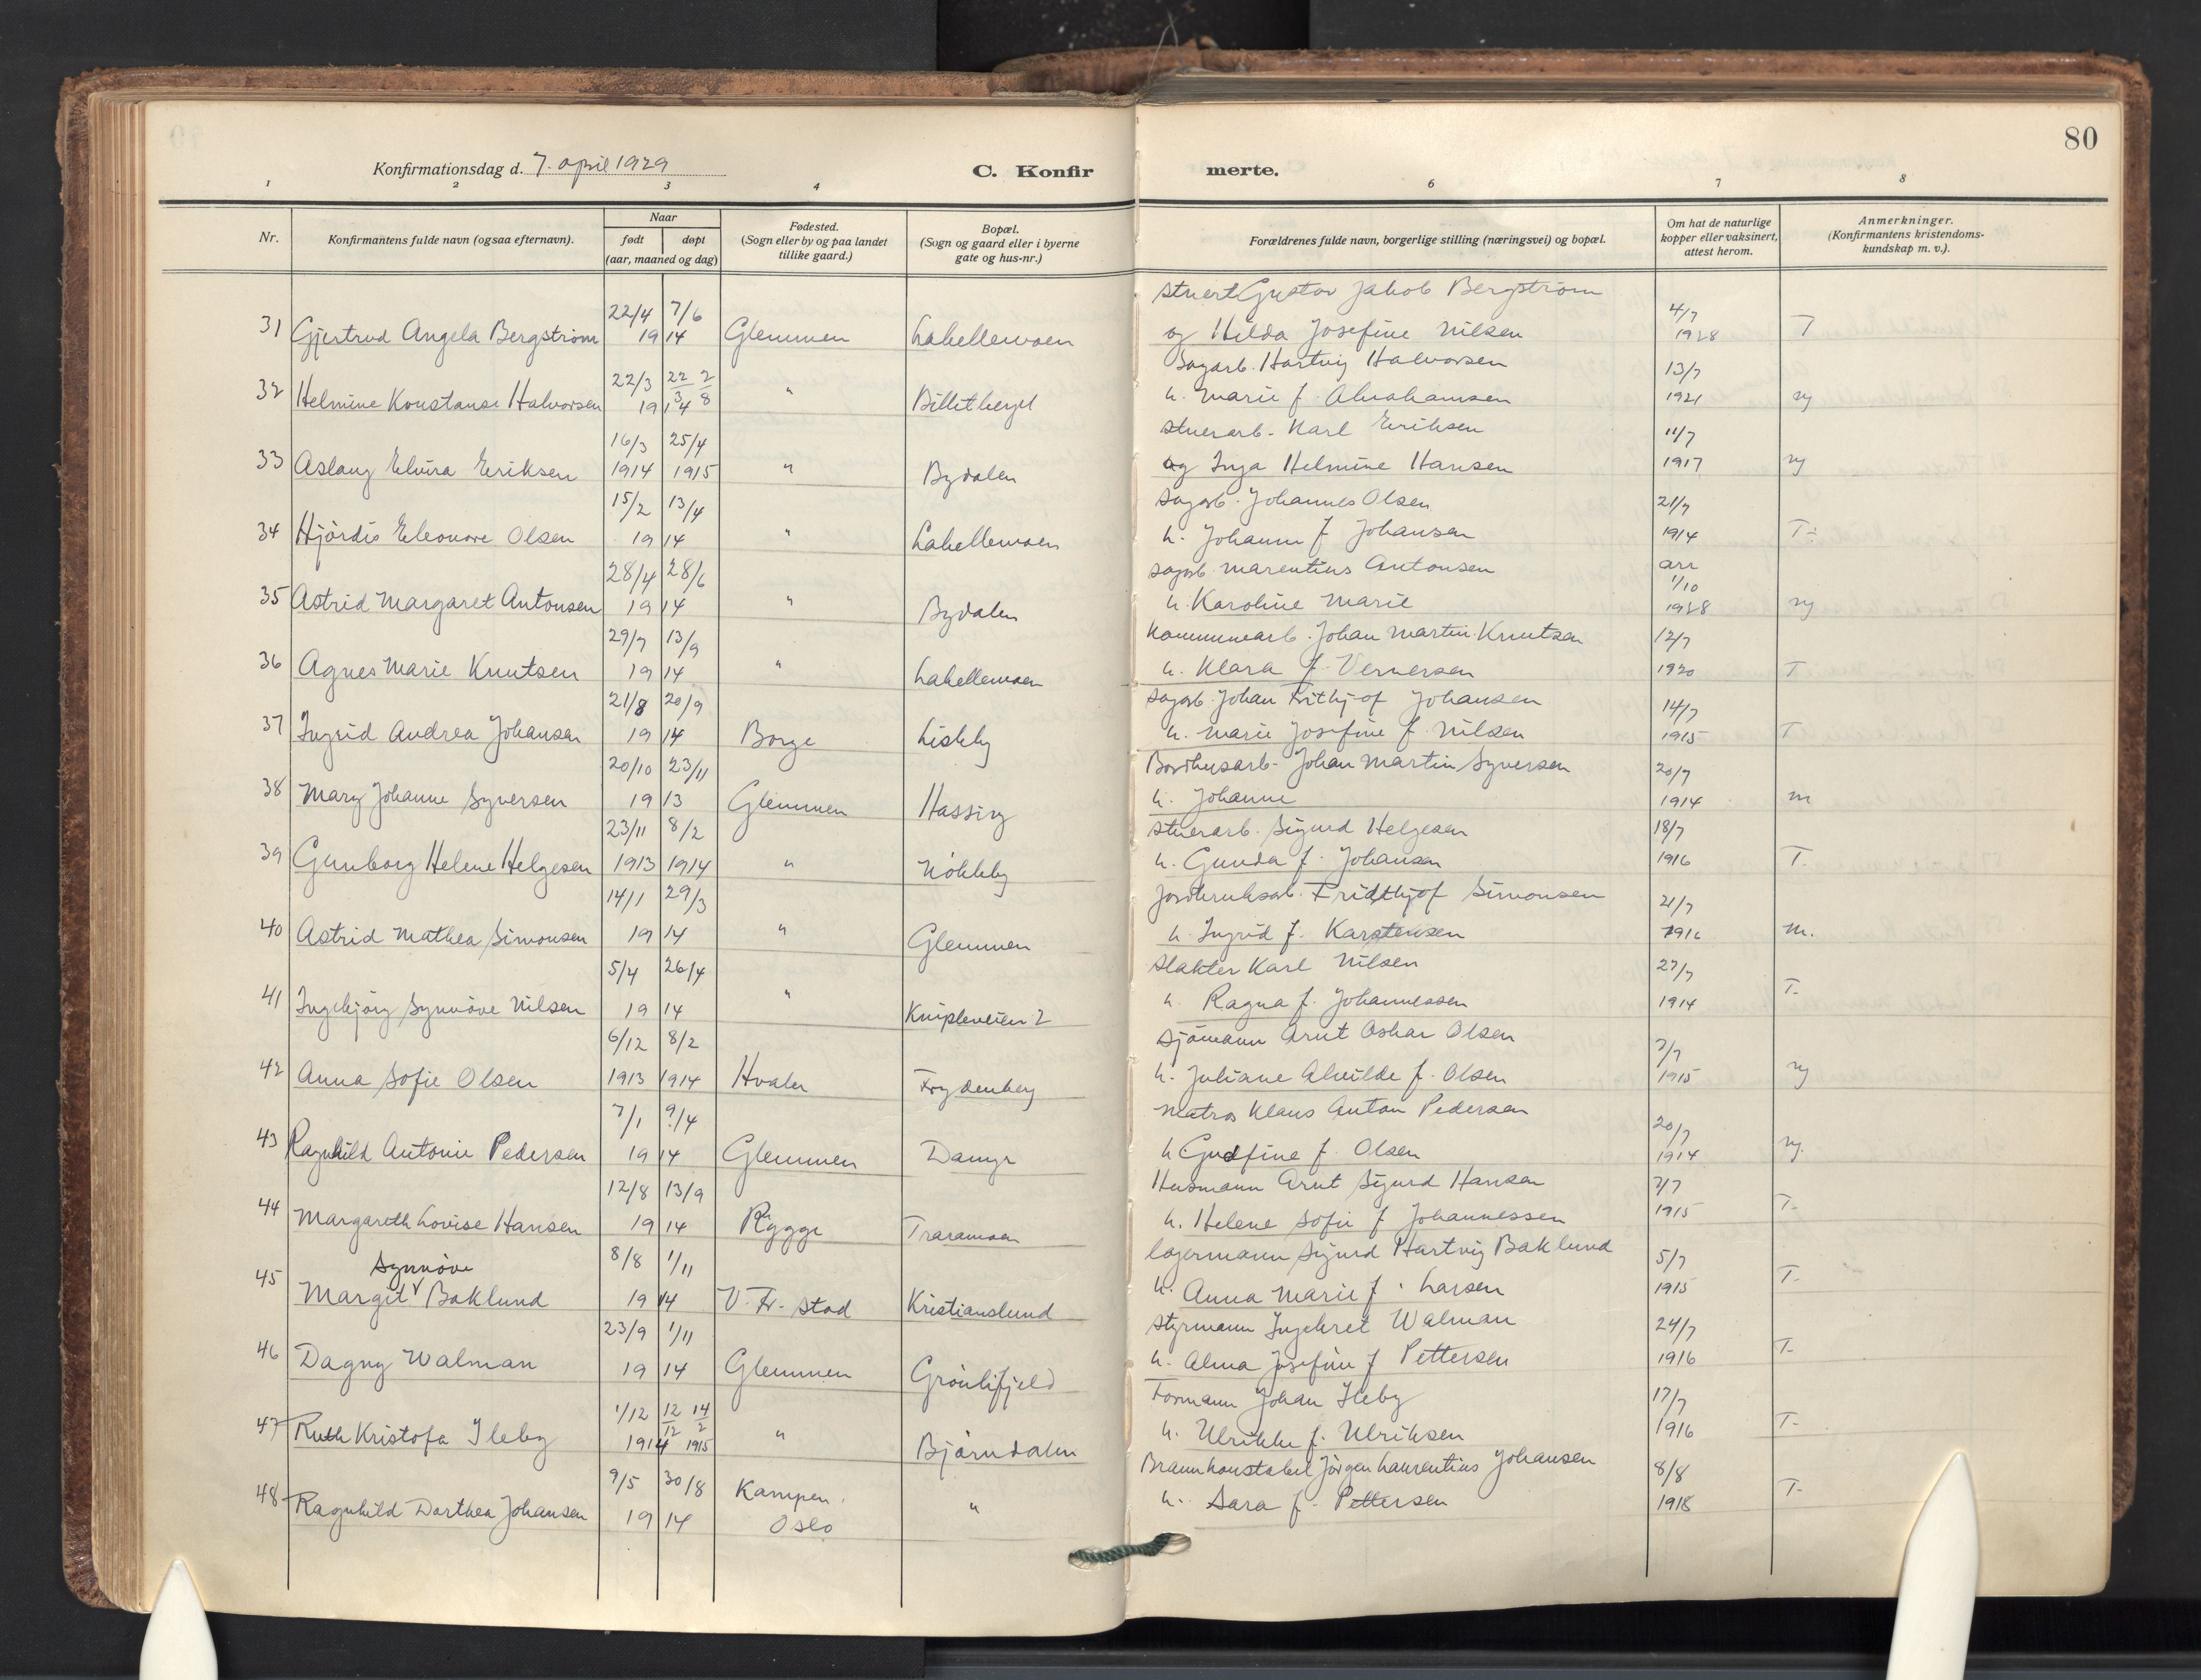 80
Konfirmationsdag d. 7. april 1929
C. Konfir merte.
1 2 3 4 6 7 8
Nr.
Konfirmantens fulde navn (ogsaa efternavn).
Naar
født døpt
(aar, maaned og dag)
Fødested.
(Sogn eller by og paa landet
tillike gaard.)
Bopæl.
(Sogn og gaard eller i byerne
gate og hus-nr.)
Forældrenes fulde navn, borgerlige stilling (næringsvei) og bopæl.
Om hat de naturlige
kopper eller vaksinert,
attest herom.
Anmerkninger.
(Konfirmantens kristendoms-
kundskap m. v.).
22/4 7/6 Stuert Gustav Jakob Bergström 4/7
31 Gjertrud Angela Bergström 19 14 Glemmen Lahellemoen og Hilda Josefine Nilsen 1928 T
22/3 22/3 2/8 Sagarb. Hartvig Halvorsen 13/7
32 Helmine Konstanse Halvorsen 19 14 " Billitberget h. Marie f. Abrahamsen 1921 ng
16/3 25/4 Stuerarb. Karl Eriksen 11/7
33 Aslaug Elvira Eriksen 1914 1915 " Bydalen og Inga Helmine Hansen 1917 ng
15/2 13/4 Sagarb. Johannes Olsen 21/7
34 Hjördis Eleonore Olsen 19 14 " Lahellemoen h. Johanne f Johansen 1914 T-
28/4 28/6 Sagarb. Marentius Antonsen arr 1/10
35 Astrid Margaret Antonsen 19 14 " Bydalen h. Karoline Marie 1928 ng
29/7 13/9 Kommunearb. Johan Martin Knutsen 12/7
36 Agnes Marie Knutsen 19 14 " Lahellemoen h. Klara f. Vernersen 1920 T
21/8 20/9 Sagarb. Johan Frithjof Johansen 14/7
37 Ingrid Andrea Johansen 19 14 Borge Lisleby h. Marie Josefine f Nilsen 1915 T
20/10 23/11 Bordhusarb. Johan Martin Syversen 20/7
38 Mary Johanne Syversen 19 13 Glemmen Hassing h. Johanne 1914 m
23/11 8/2 Stuerarb. Sigurd Helgesen 18/7
39 Gunborg Helene Helgesen 1913 1914 " Nökleby h. Gunda f. Johansen 1916 T.
14/1 29/3 Jordbruksarb. Fridthjof Simonsen 21/7
40 Astrid Mathea Simonsen 19 14 " Glemmen h. Ingrid f. Karstensen 1916 m.
5/4 26/4 Slakter Karl Nilsen 27/7
41 Ingebjörg Synnöve Nilsen 19 14 " Knipleveien 2 h. Ragna f. Johannessen 1914 T-
6/12 8/2 Sjömann Arnt Oskar Olsen 7/7
42 Anna Sofie Olsen 1913 1914 Hvaler Frydenberg h. Juliane Alvilde f. Olsen 1915 ng
7/1 9/4 Matros Klaus Anton Pedersen 20/7
43 Ragnhild Antonie Pedersen 19 14 Glemmen Damyr h Gudfine f. Olsen 1914 ng.
12/8 13/9 Husmann Arnt Sigurd Hansen 7/7
44 Margareth Lovise Hansen 19 14 Rygge Traramoen h. Helene Sofie f Johannessen 1915 T-
Synnöve 8/8 1/11 Lagermann Sigurd Hartvig Baklund 5/7
45 Margit Baklund 19 14 V. Fr. stad Kristianslund h. Anna Marie f. Larsen 1915 T-
23/9 1/11 Styrmann Ingebret Walman 24/7
46 Dagny Walman 19 14 Glemmen Grönlifjeld h. Alma Josefine f Pettersen 1916 T-
1/12 12/12 14/2 Formann Johan Ileby 17/7
47 Ruth Kristofa Ileby 1914 1915 " Björndalen h. Ulrikke f. Ulriksen 1916 T-
9/5 30/8 Kampen Brannkonstabel Jörgen Laurentius Johansen 8/8
48 Ragnhild Dorthea Johansen 19 14 Oslo " h. Sara f. Pettersen 1918 T-